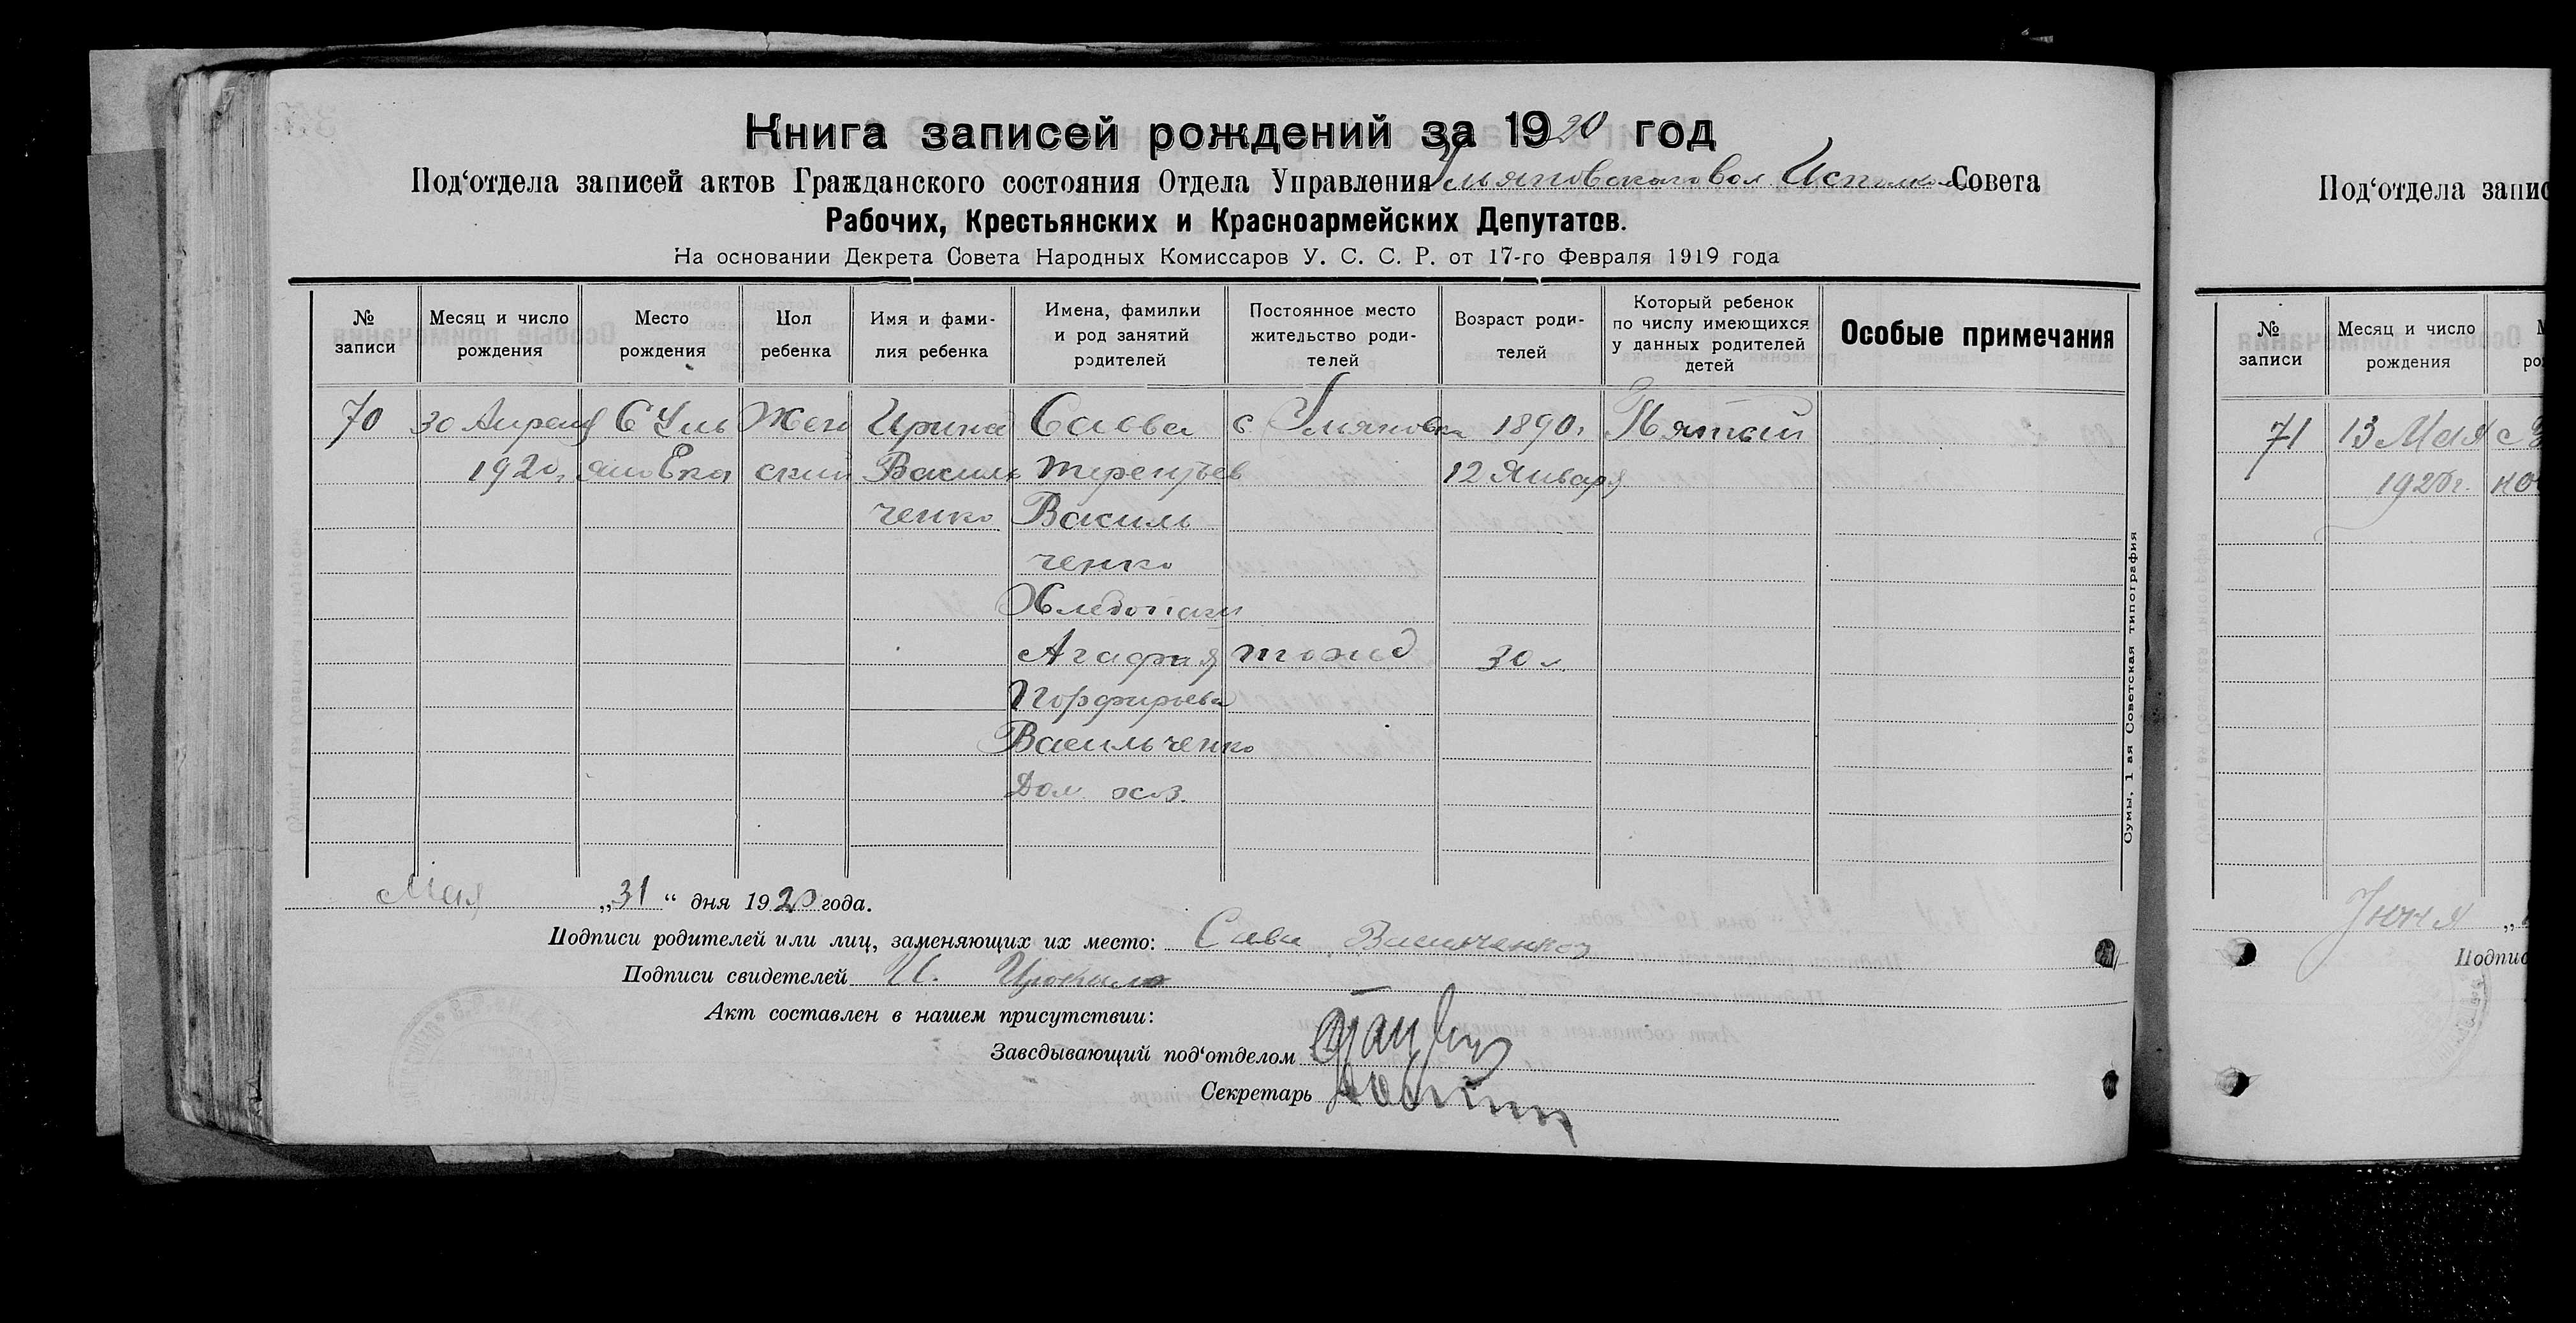 Книга записей рождений за 1920 год
Под‘отдела записей актов Гражданского состояния Отдела Управления Ульяновского Вол Исполком Совета
Рабочих, Крестьянских и Красноармейских Депутатов.
На основании Декрета Совета Народных Комиссаров У. С. С. Р. от 17-го Февраля 1919 года
№ записи
Месяц и число рождения
Место рождения
Пол ребенка
Имя и фами-
лия ребенка
Имена, фамилии
и род занятий
родителей
Постоянное место
жительство роди-
телей
Возраст роди-
телей
Который ребенок
по числу имеющихся
у данных родителей
детей
Особые примечания
70
30 Апреля
1920г.
С Уль
яновка
Жен
ский
Ирина
Василь
ченко
Савва
Терентьев
Василь
ченко
Хлебопаш
с Ульяновка
1890г
12 Января
Пятый
Агафия
Порфирьева
Васильченко
Дом. хоз.
тоже
30 л.
Мая „31“ дня 1920 года.
Подписи родителей или лиц, заменяющих их место: Сава Васильченко
Подписи свидетелей И.
Акт составлен в нашем присутствии:
Заведывающий под‘отделом
Секретарь
Сумы, 1 ая Советская типография
Под‘отдела запис
№ записи
Месяц и число рождения
71
13 Мая
1920г.
Июня „
Подпис